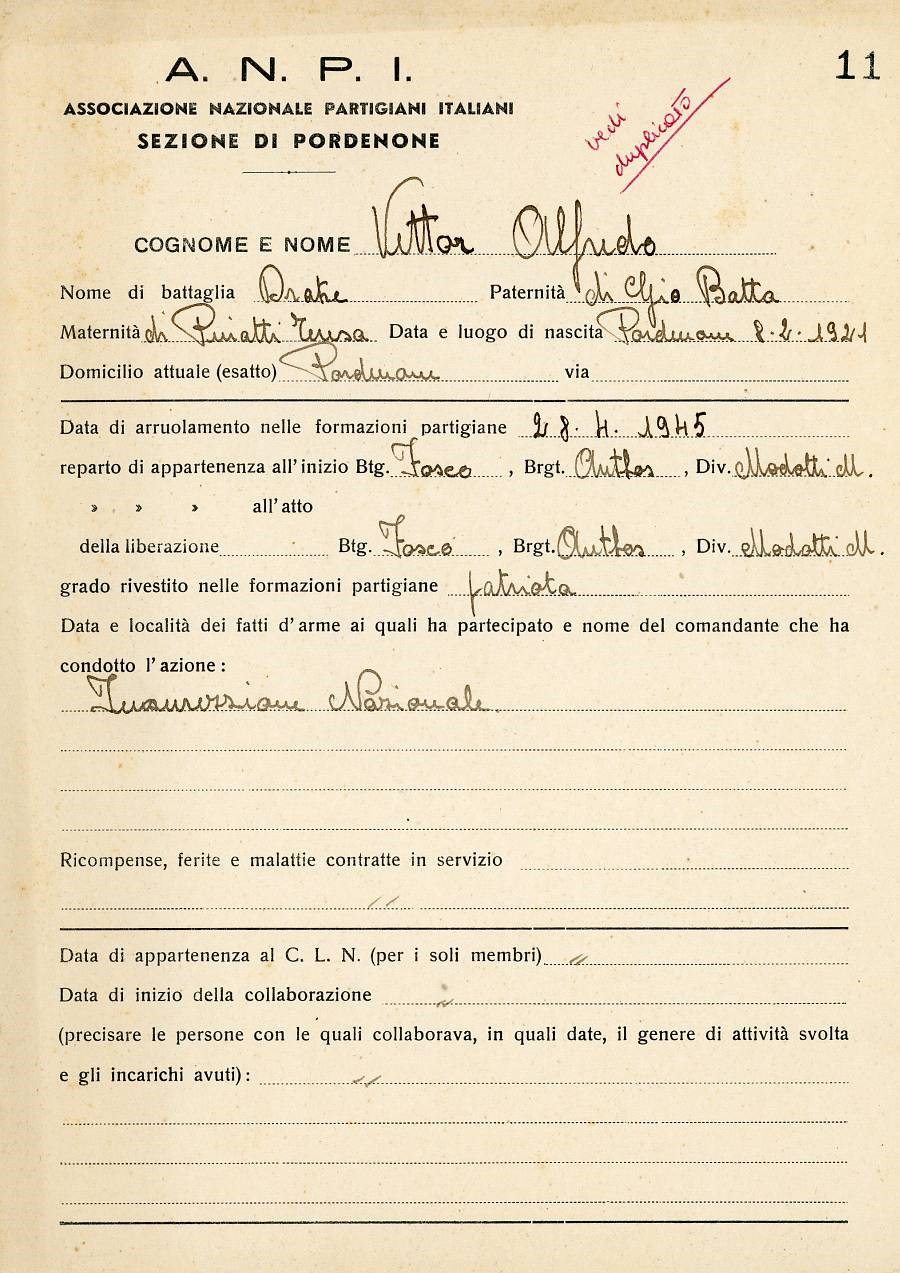 A. N. P. I.
11
ASSOCIAZIONE NAZIONALE PARTIGIANI ITALIANI
SEZIONE DI PORDENONE
vedi
duplicato
COGNOME E NOME Vettor Alfredo
Nome di battaglia Drake Paternità di Gio Batta
Maternità di Puiatti Teresa Data e luogo di nascita Pordenone 8-2-1921
Domicilio attuale (esatto) Pordenone via
Data di arruolamento nelle formazioni partigiane 28.4.1945
reparto di appartenenza all'inizio Btg. Fosco, Brgt. Anthos, Div. Modotti M.
» » » all'atto
della liberazione Btg. Fosco, Brgt. Anthos, Div. Modotti M.
grado rivestito nelle formazioni partigiane patriota
Data e località dei fatti d'arme ai quali ha partecipato e nome del comandante che ha
condotto l'azione:
Insurrezione Nazionale.
Ricompense, ferite e malattie contratte in servizio
//
Data di appartenenza al C. L. N. (per i soli membri) //
Data di inizio della collaborazione //
(precisare le persone con le quali collaborava, in quali date, il genere di attività svolta
e gli incarichi avuti): //